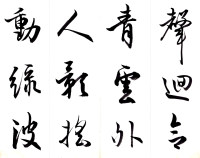 聲迴合
青雲外
人影搖
動綠波